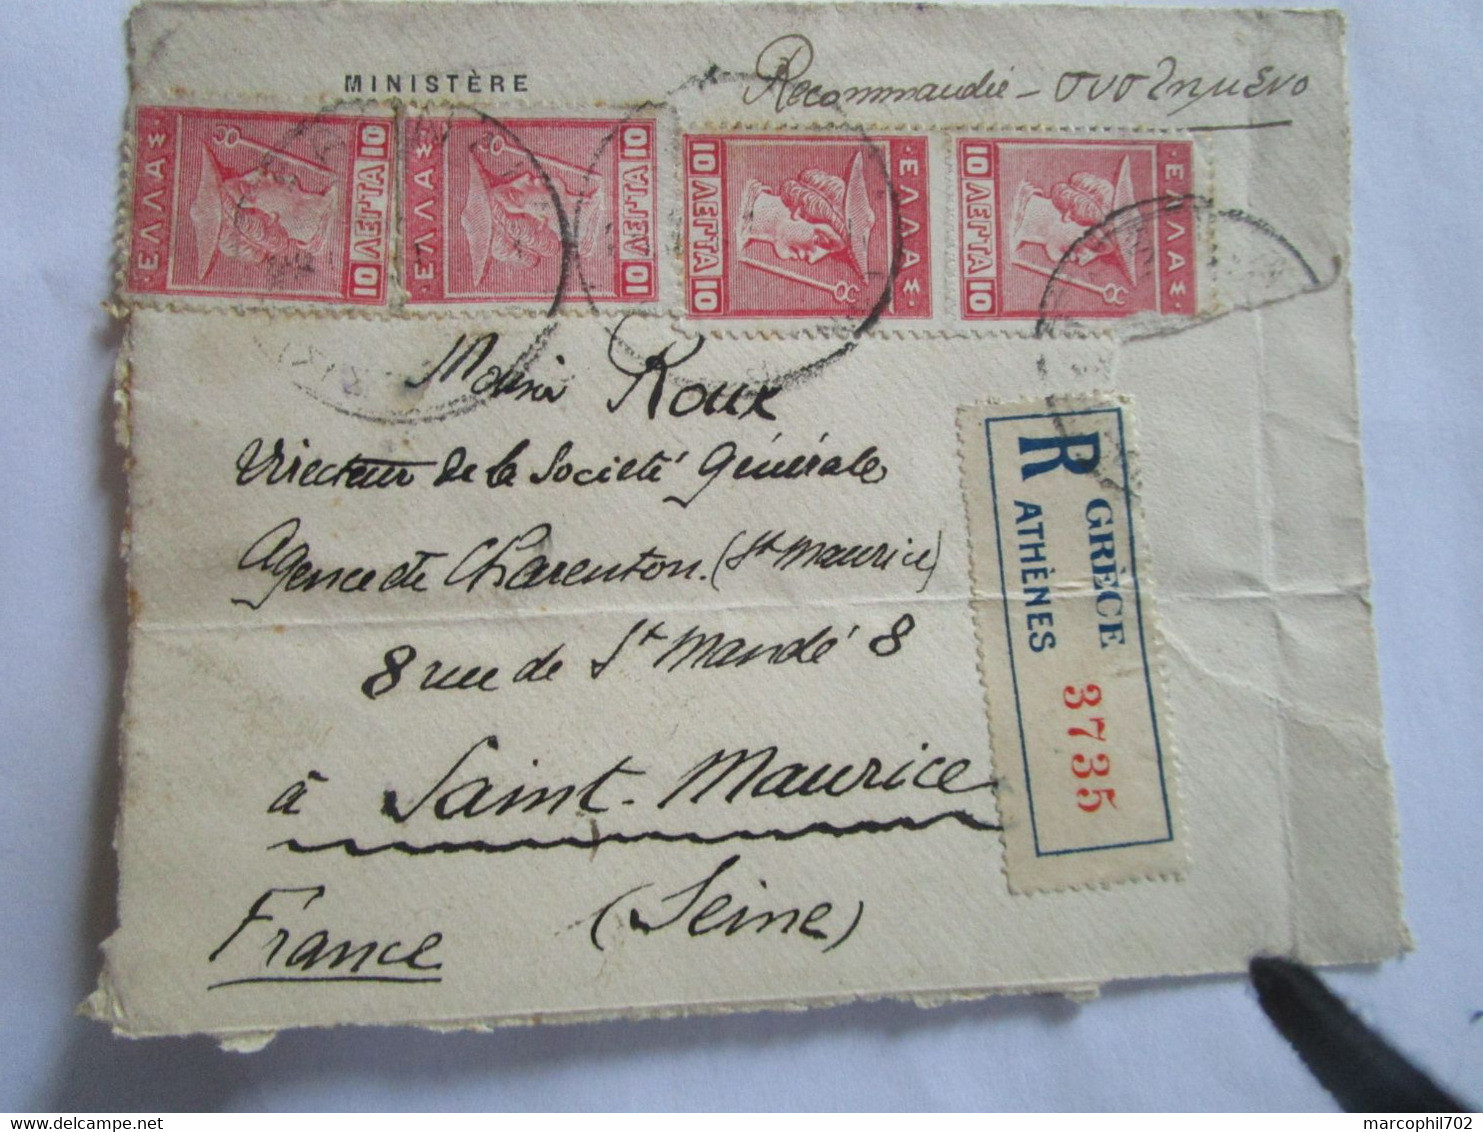 MINISTÈRE
Recommandie - συστημενο
ΕΛΛΑΣ 10 ΛΕΠΤΑ 10
ΕΛΛΑΣ 10 ΛΕΠΤΑ 10
10 ΛΕΠΤΑ 10 ΕΛΛΑΣ
10 ΛΕΠΤΑ 10 ΕΛΛΑΣ
Roux
Directeur de la Societé Générale
Agence de Charenton. (St Maurice)
8 rue de St Mandé 8
à Saint. Maurice
(Seine)
France
R GRÈCE
ATHÈNES
3735
marcophil702